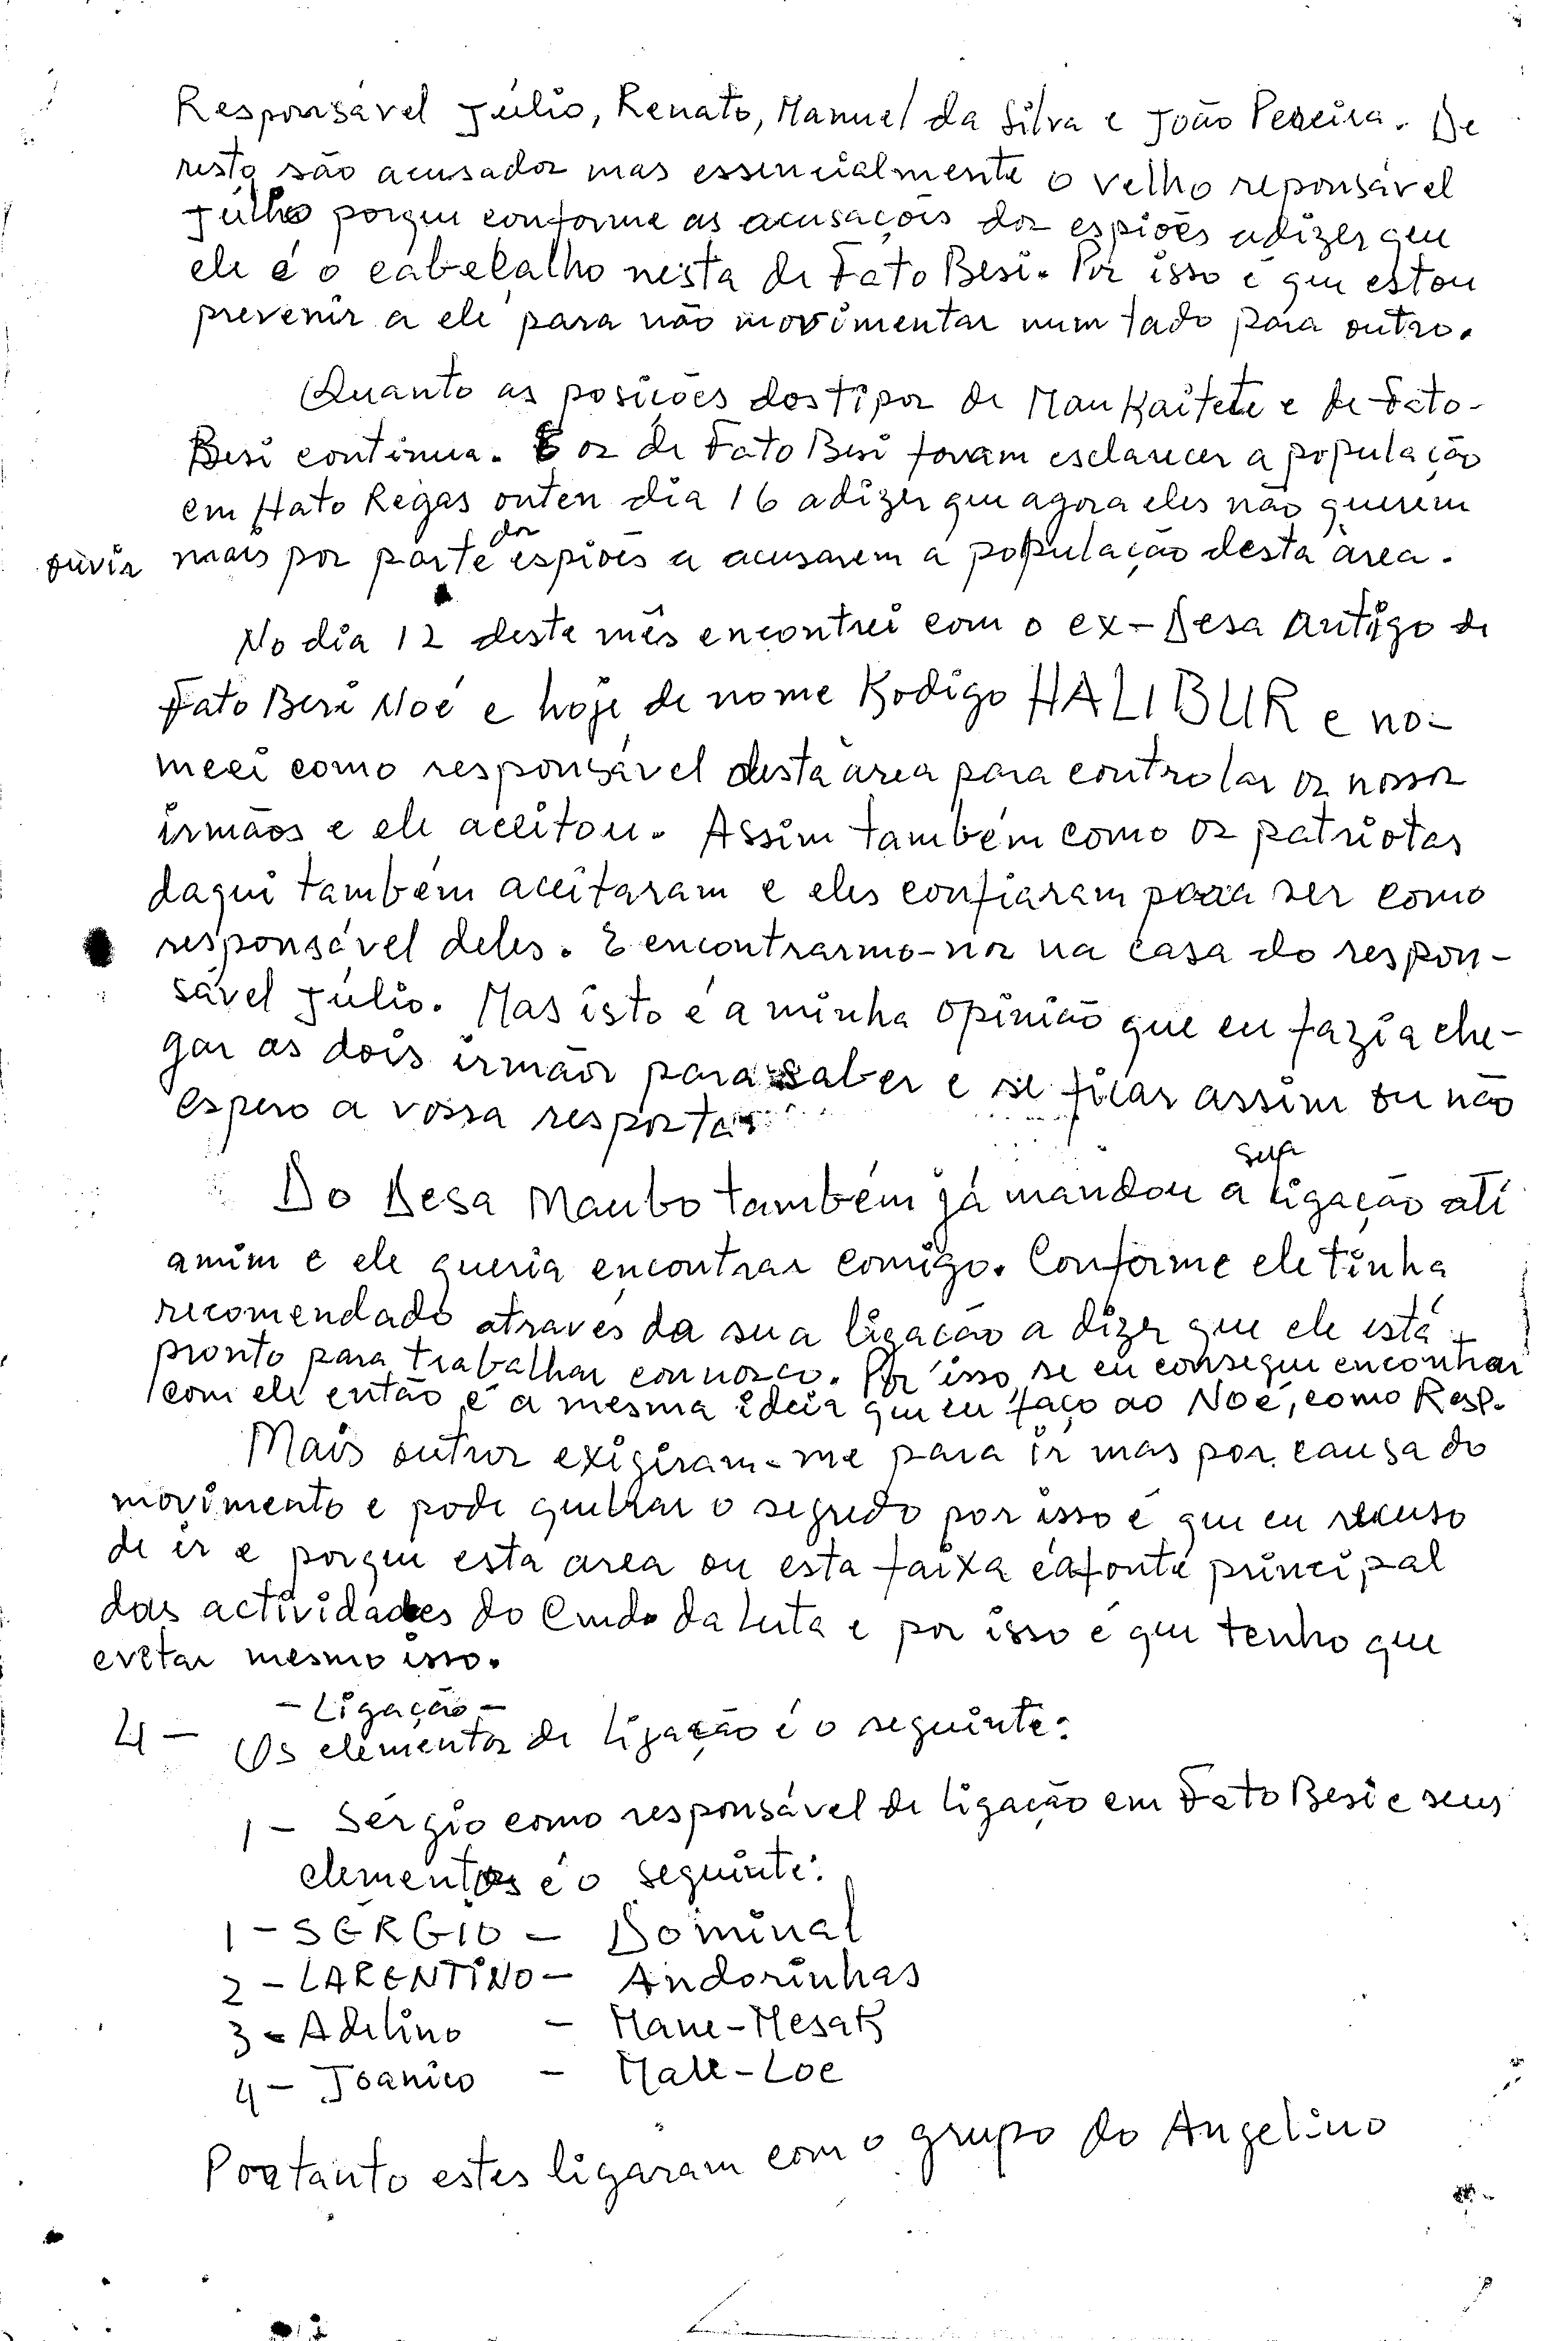 Responsável Júlio, Renato, Manuel da Silva e João Pereira. De
resto são acusados mas essencialmente o velho reponsável
Júlho porque conforme as acusações dos espiões adizer que
ele é o cabeçalho nesta de Fato Besi. Por isso é que estou
prevenir a ele para não movimentar num lado para outro.
Quanto as posições dos tipos de Maukaitete e de Fato-
Besi continua. E os de Fato Besi foram esclarecer a população
em Hato Regas onten dia 16 adizer que agora eles não querem
ouvir mais por parte dos espiões a acusarem a população desta área.
No dia 12 deste mês encontrei com o ex-Desa antigo de
Fato Besi Noé e hoje de nome Kodigo HALIBUR e no-
meei como responsável desta área para controlar os nossos
irmãos e ele aceitou. Assim também como os patriotas
daqui também aceitaram e eles confiaram para ser como
responsável deles. E encontrarmo-nos na casa do respon-
sável Júlio. Mas isto é a minha opinião que eu fazia che-
gar as dois irmãos para saber e se ficar assim ou não
espero a vossa resposta.
Do Desa Maubo também já mandou a sua ligação até
amim e ele queria encontrar comigo. Conforme ele tinha
recomendado através da sua ligação a dizer que ele está
pronto para trabalhar connosco. Por isso, se eu consegui encontrar
com ele então é a mesma ideia que eu faço ao Noé, como Resp.
Mais outros exigiram-me para ir mas por causa do
movimento e pode quebrar o segredo por isso é que eu recuso
de ir e porque esta area ou esta faixa é a fonte principal
das actividades do Cmdo da Luta e por isso é que tenho que
evitar mesmo isso.
- Ligação -
4 - Os elementos de ligação é o seguinte:
1 - Sérgio como responsável de ligação em Fato Besi e seus
elementos é o seguinte:
1 - SÉRGIO - Dominal
2 - LARENTINO - Andorinhas
3 - Adelino - Mane-Mesak
4 - Joanico - Male-Loe
Portanto estes ligaram com o grupo do Angelino